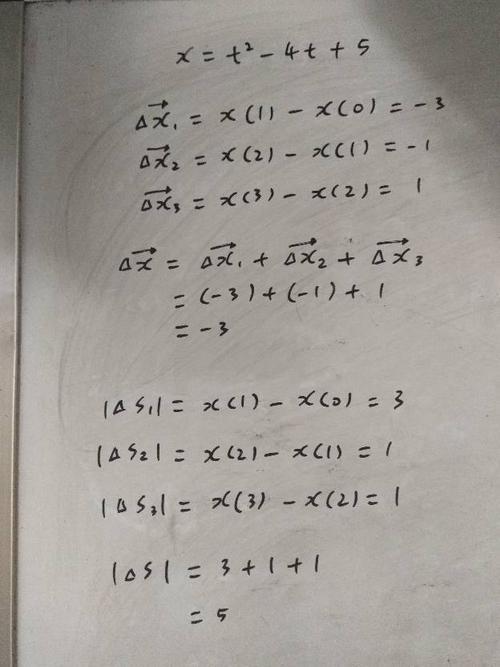 x = t² - 4t + 5
Δx⃗₁ = x(1) - x(0) = -3
Δx⃗₂ = x(2) - x(1) = -1
Δx⃗₃ = x(3) - x(2) = 1
Δx⃗ = Δx⃗₁ + Δx⃗₂ + Δx⃗₃
= (-3) + (-1) + 1
= -3
|ΔS₁| = x(1) - x(0) = 3
|ΔS₂| = x(2) - x(1) = 1
|ΔS₃| = x(3) - x(2) = 1
|ΔS| = 3 + 1 + 1
= 5